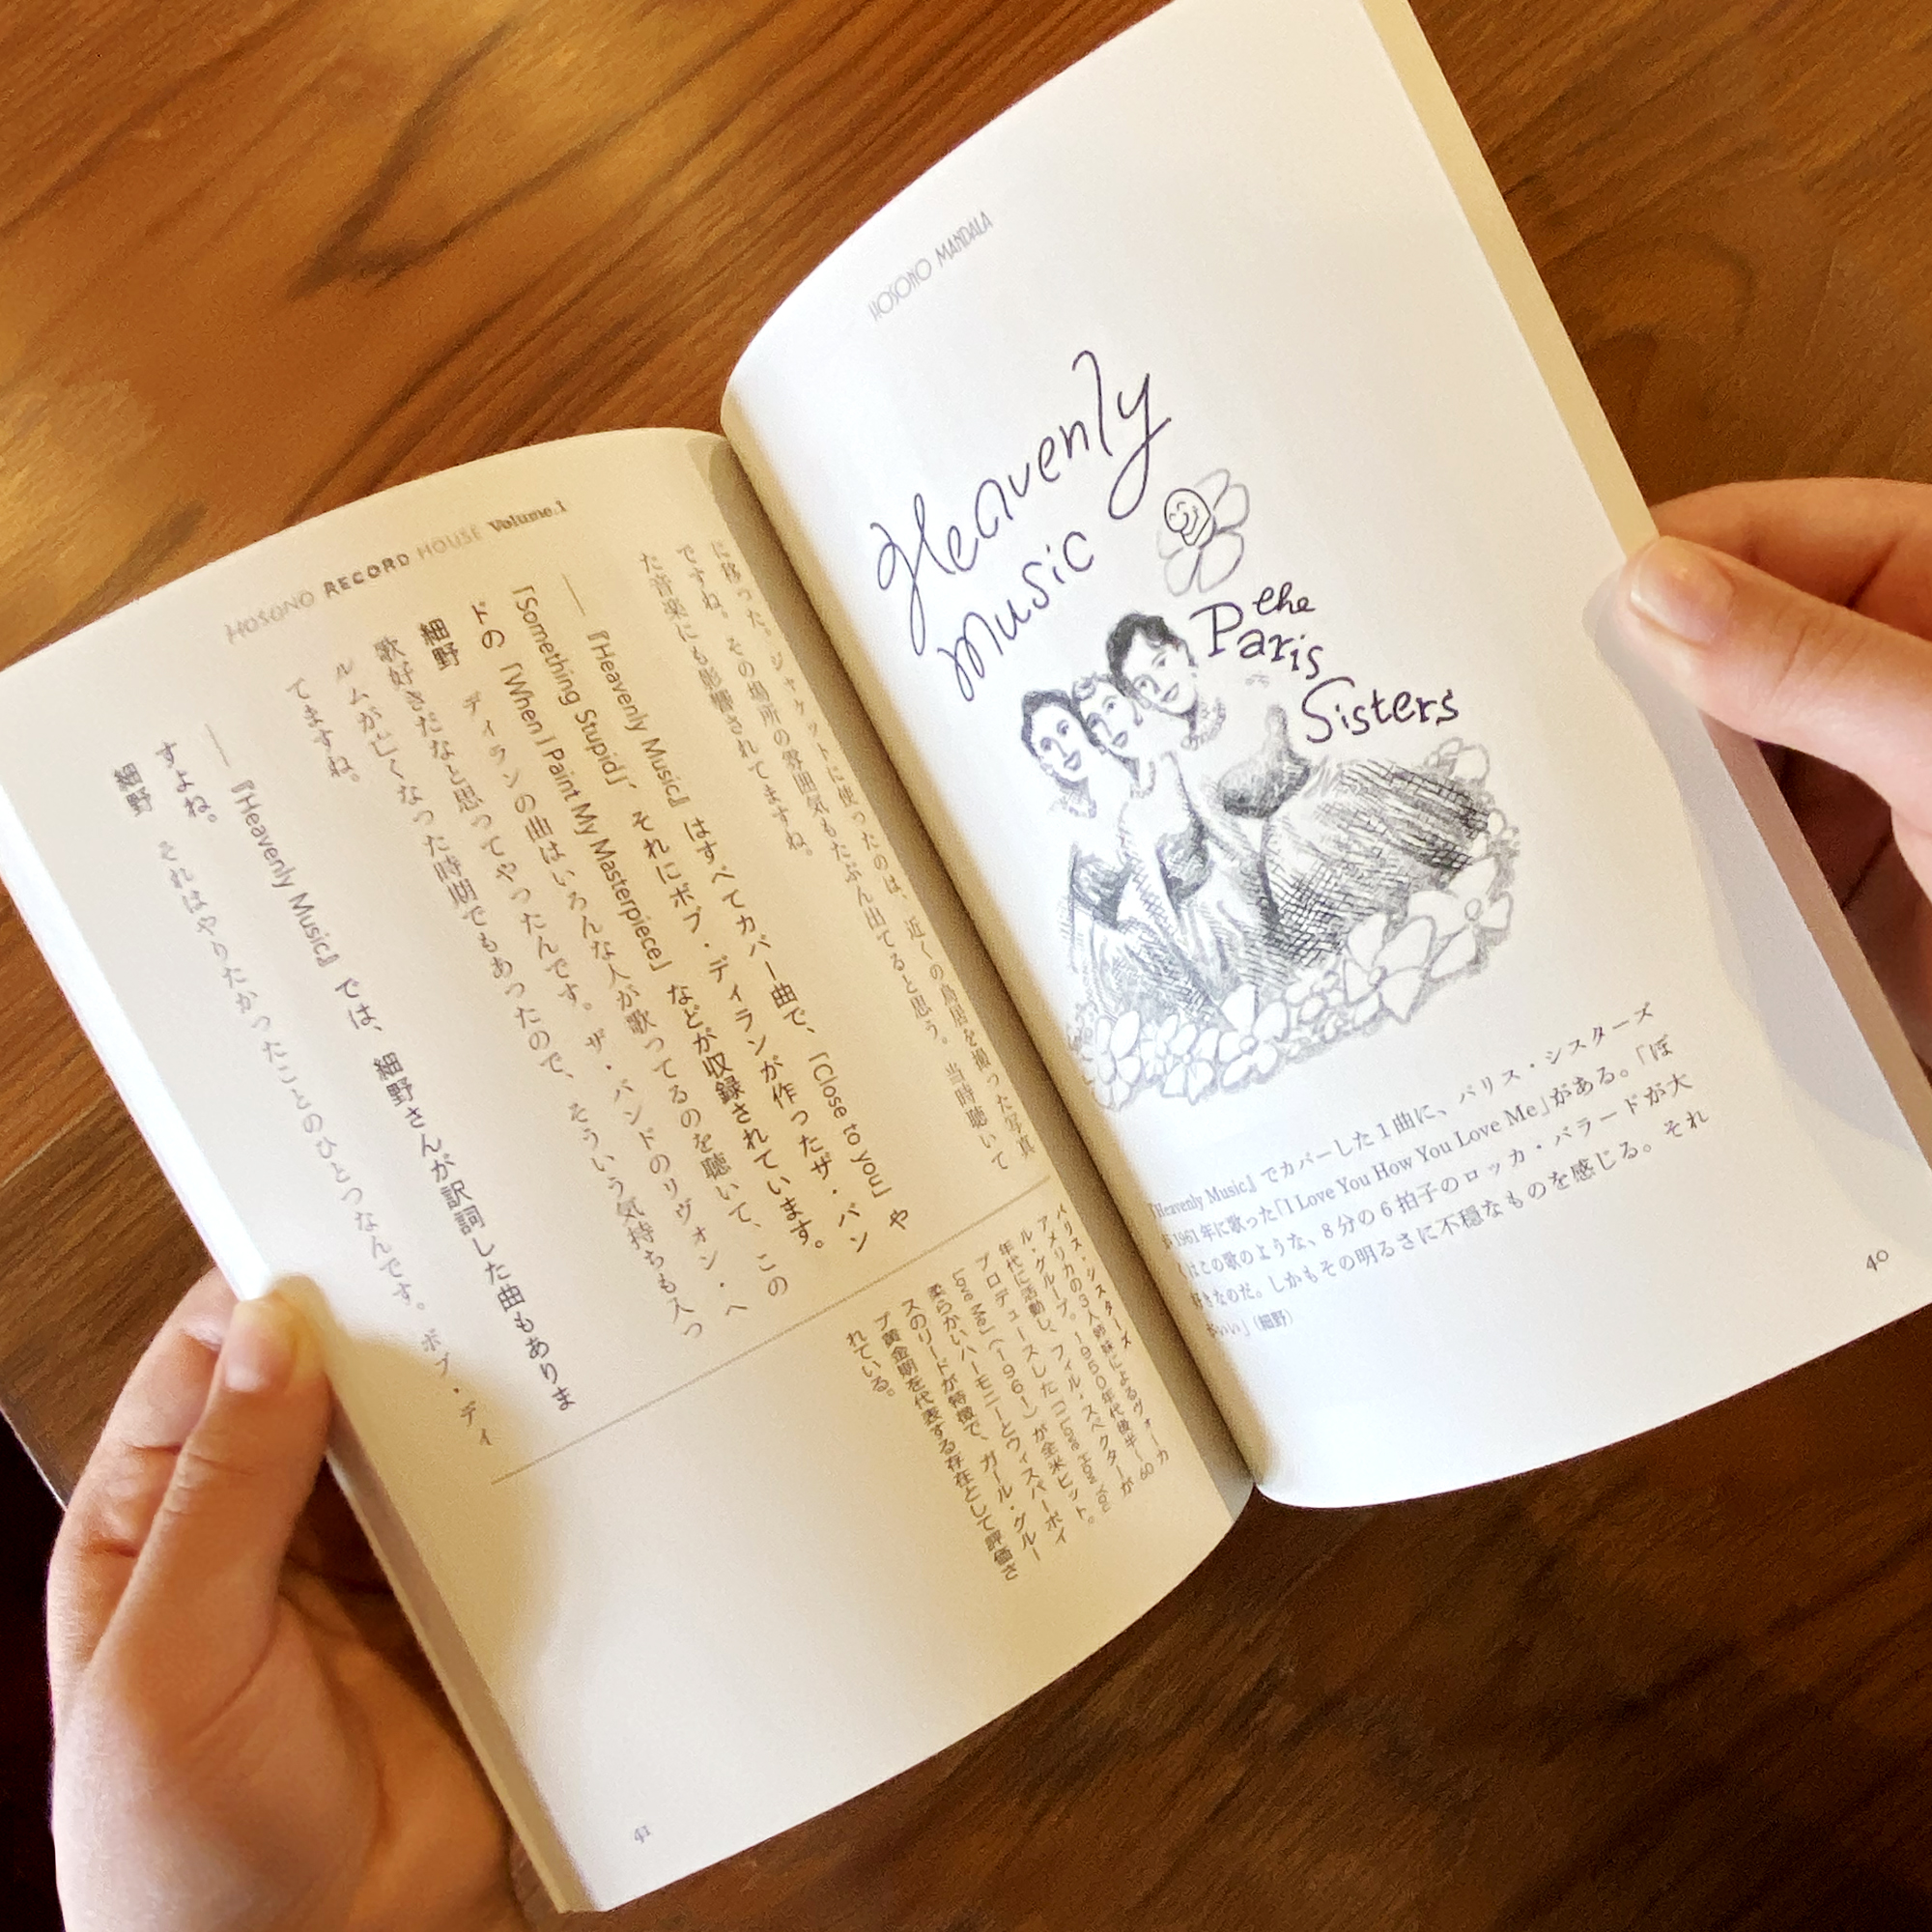 HOSONO MANDALA
Heavenly
Music
the
Paris
Sisters
『Heavenly Music』でカバーした1曲に、パリス・シスターズ
が1961年に歌った「I Love You How You Love Me」がある。「ぼ
くはこの歌のような、8分の6拍子のロッカ・バラードが大
好きなのだ。しかもその明るさに不穏なものを感じる。それ
がいい」(細野)
40
HOSONO RECORD HOUSE Volume.1
に移った。ジャケットに使ったのは、近くの鳥居を撮った写真
ですね。その場所の雰囲気もたぶん出てると思う。当時聴いて
た音楽にも影響されてますね。
――『Heavenly Music』はすべてカバー曲で、「Close to you」や
「Something Stupid」、それにボブ・ディランが作ったザ・バン
ドの「When I Paint My Masterpiece」などが収録されています。
細野 ディランの曲はいろんな人が歌ってるのを聴いて、この
歌好きだなと思ってやったんです。ザ・バンドのリヴォン・ヘ
ルムが亡くなった時期でもあったので、そういう気持ちも入っ
てますね。
――『Heavenly Music』では、細野さんが訳詞した曲もありま
すよね。
細野 それはやりたかったことのひとつなんです。ボブ・ディ
パリス・シスターズ
アメリカの3人姉妹によるヴォーカ
ル・グループ。1950年代後半〜60
年代に活動し、フィル・スペクターが
プロデュースした「I Love How You
Love Me」(1961)が全米ヒット。
柔らかいハーモニーとウィスパーボイ
スのリードが特徴で、ガール・グルー
プ黄金期を代表する存在として評価さ
れている。
41